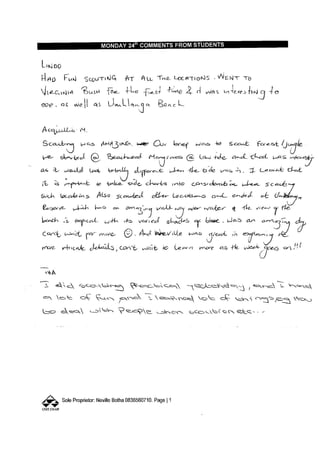 MONDAY 24th COMMENTS FROM STUDENTS
LINDO
HAD FUN SCOUTING AT ALL THE LOCATIONS. WENT TO
VIRGINIA BUSH FOR the first time & it was interesting to
see, as well as Umhlanga Beach.
M.
Scouting was AMAZING. Our brief was to scout Forest/Jungle
we started @ Beachwood Mangroves @ low tide and that was interesting
as it would look totally different when the tide was in. I learnt that
it is important to take tide charts into consideration when scouting
such locations. Also scouted other locations and ended at
Reserve which has an amazing walk way over water & the view of the
beach is magical with its varied shades of blue. Was an amazing day
can't wait for more ☺. And Neville was great in explaining all the
more intricate details, can't wait to learn more as the week goes on!!!
I did scouting practical yesterday, and I had
a lot of fun and I learned lots of things, eg How
to deal with People when scouting etc...
Sole Proprietor: Neville Botha 0836580710. Page | 1